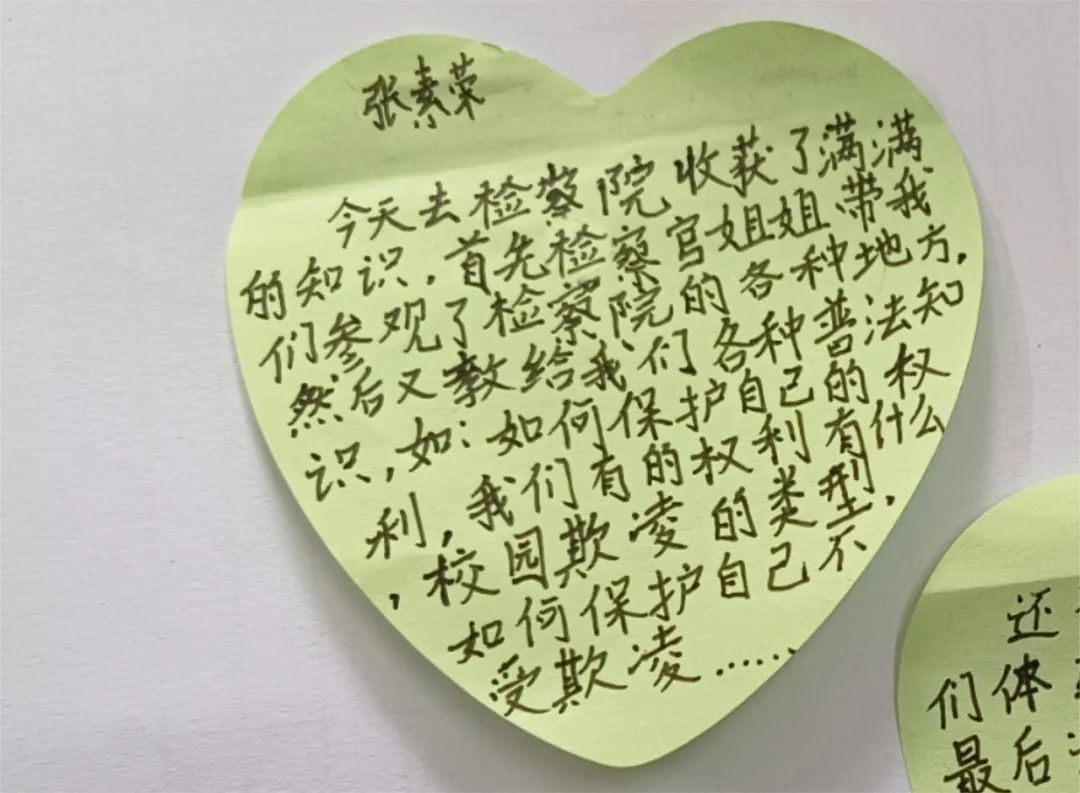 张素荣
今天去检察院收获了满满
的知识，首先检察官姐姐带我
们参观了检察院的各种地方，
然后又教给我们各种普法知
识，如：如何保护自己的权
利，我们有的权利有什么
，校园欺凌的类型，
如何保护自己不
受欺凌……
还
们体
最后